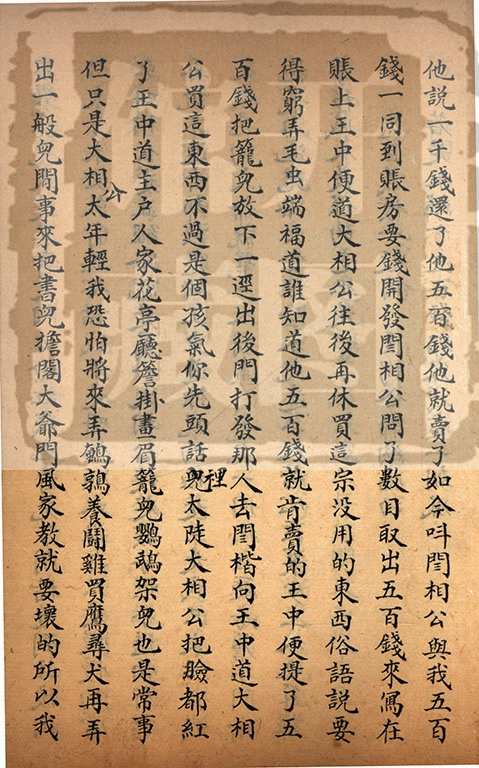 他說一千錢還了他五百錢他就賣了如今呌閆相公與我五百
錢一同到賬房要錢開發閆相公問了數目取出五百錢來寫在
賬上王中便道大相公往後再休買這宗没用的東西俗語說要
得窮弄毛虫端福道誰知道他五百錢就肯賣的王中便提了五
百錢把籠兒放下一逕出後門打發那人去閆楷向王中道大相
公買這東西不過是個孩氣你先頭話兒裡太陡大相公把臉都紅
了王中道主户人家花亭廳簷掛畫眉籠兒鸚鵡架兒也是常事
但只是大相公太年輕我恐怕將來弄鵪鶉養鬪雞買鷹尋犬再弄
出一般兒閒事來把書兒擔閣大爺門風家教就要壞的所以我